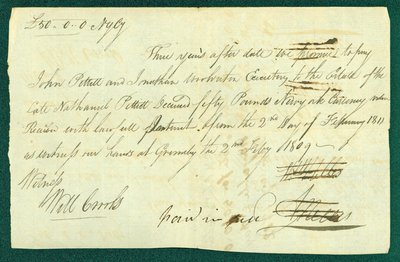 £50 - 0 - 0 NyCy
Three years after date we promise to pay
John Pettett and Jonathan Woolverton Executors to the Estate of the
late Nathaniel Pettett Deceased fifty Pounds New york Currency value
Received with lawfull Interest from the 2nd Day of February 1811
as witness our hands at Grimsby the 2nd Feby 1809
Witness
Will Crooks
paid in